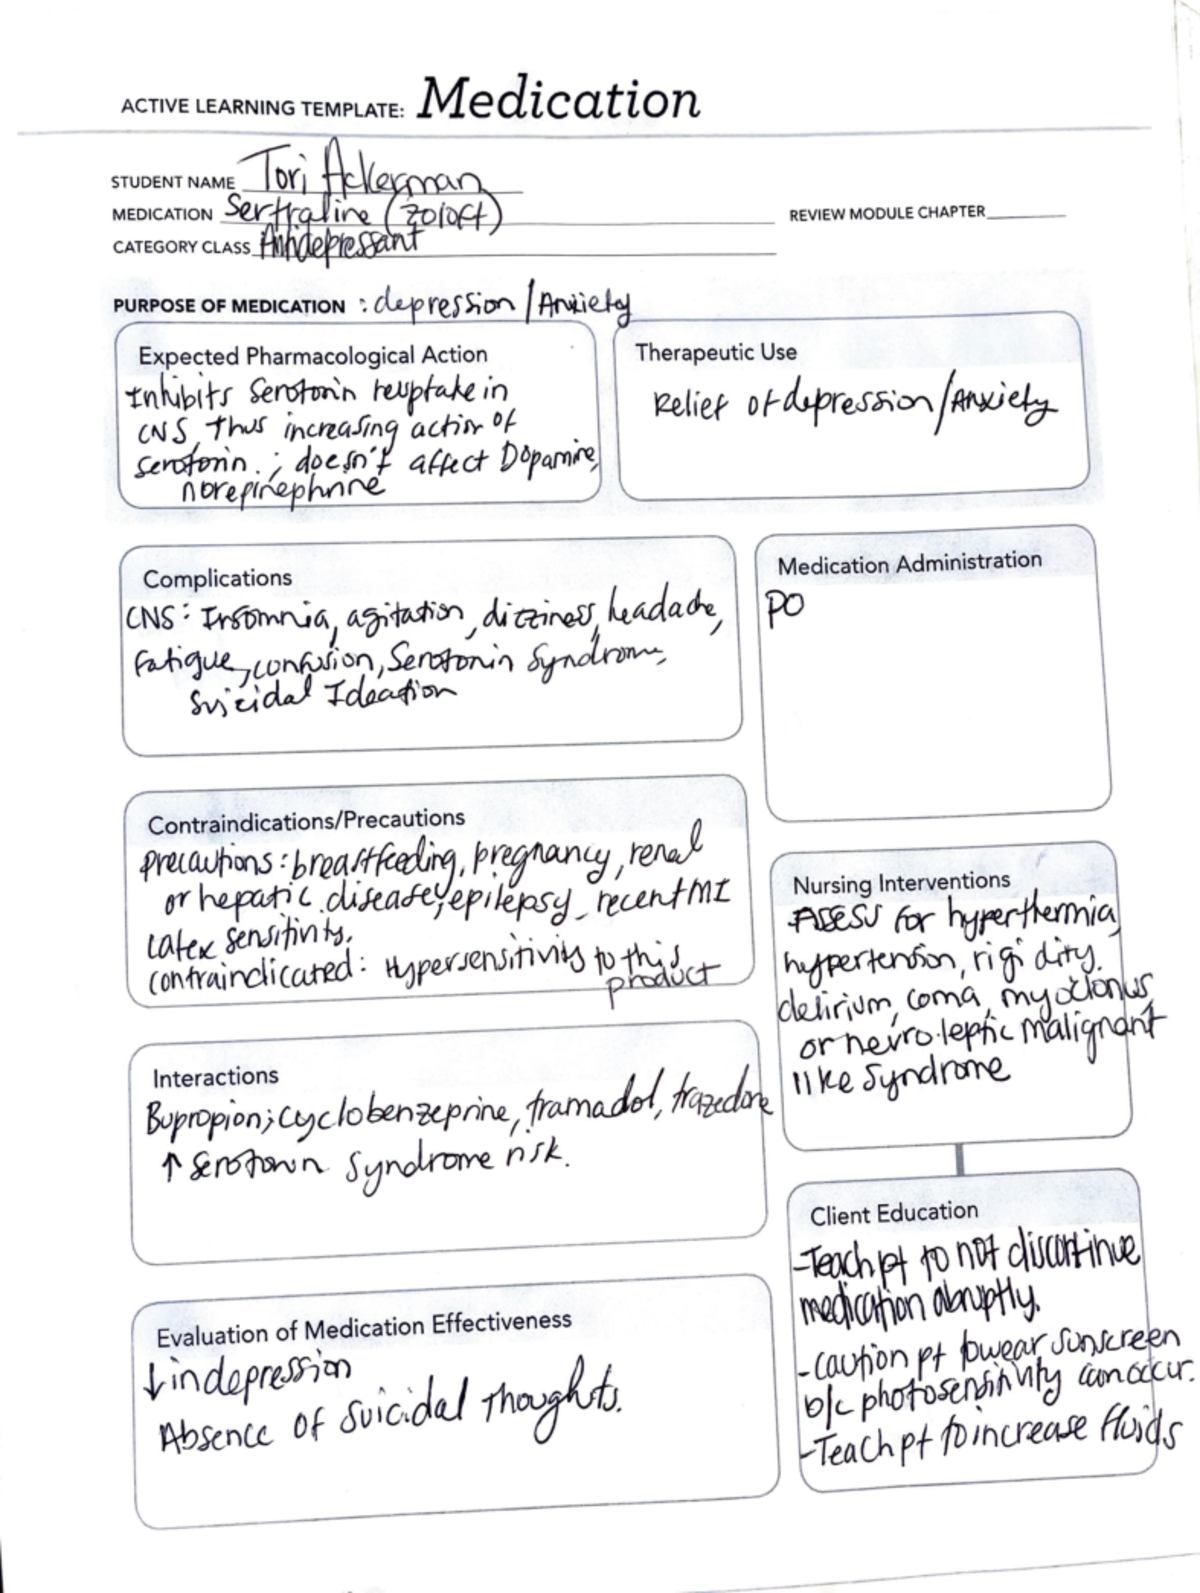 ACTIVE LEARNING TEMPLATE: Medication
STUDENT NAME Tori Ackerman
MEDICATION Sertraline (Zoloft)
REVIEW MODULE CHAPTER
CATEGORY CLASS Antidepressant
PURPOSE OF MEDICATION : depression/Anxiety
Expected Pharmacological Action
Inhibits Serotonin reuptake in
CNS, thus increasing action of
serotonin. ; doesn't affect Dopamine,
norepinephrine
Therapeutic Use
Relief of depression/Anxiety
Complications
CNS: Insomnia, agitation, dizziness, headache,
Fatigue, confusion, Serotonin Syndrome,
Suicidal Ideation
Medication Administration
PO
Contraindications/Precautions
Precautions: breastfeeding, pregnancy, renal
or hepatic disease, epilepsy, recent MI
Latex sensitivity.
contraindicated: Hypersensitivity to this
product
Nursing Interventions
- Assess for hyperthermia,
hypertension, rigidity,
delirium, coma, myoclonus,
or neuroleptic malignant
like Syndrome
Interactions
Bupropion; cyclobenzeprine, tramadol, trazedone
↑ Serotonin Syndrome risk.
Client Education
-Teach pt to not discontinue
medication abruptly.
-caution pt to wear sunscreen
b/c photosensitivity can occur.
-Teach pt to increase fluids
Evaluation of Medication Effectiveness
↓ in depression
Absence of Suicidal Thoughts.